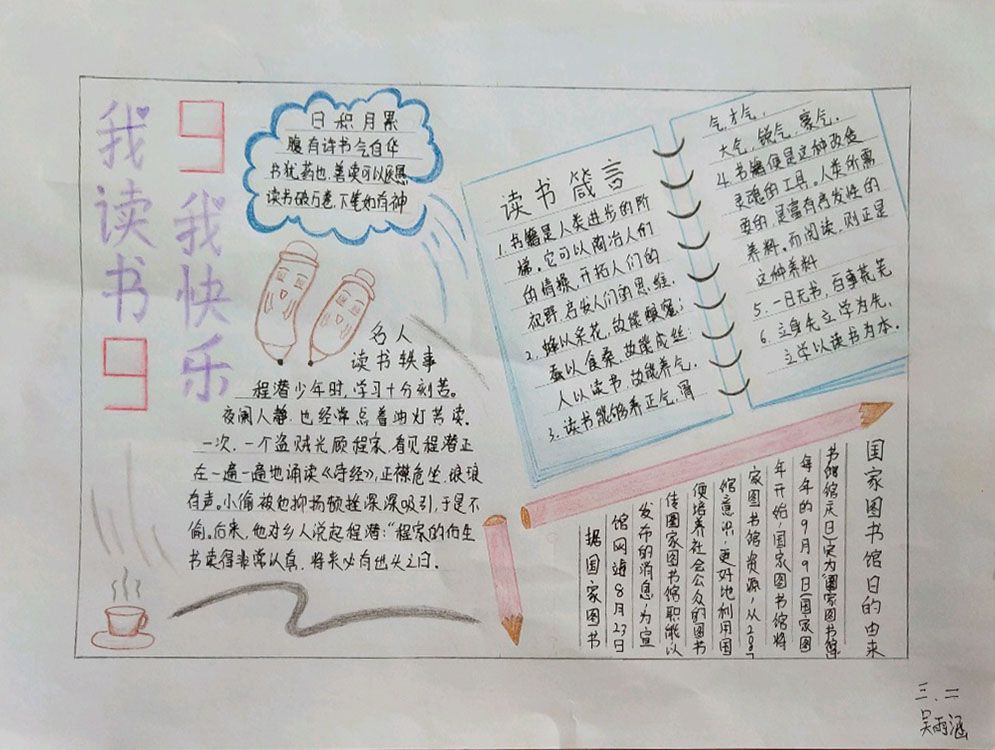 我读书
我快乐
日积月累
腹有诗书气自华
书犹药也,善读可以医愚
读书破万卷,下笔如有神
名人
读书轶事
程潜少年时,学习十分刻苦。
夜阑人静,也经常点着油灯苦读。
一次,一个盗贼光顾程家,看见程潜正
在一遍一遍地诵读《诗经》,正襟危坐,琅琅
有声。小偷被他抑扬顿挫深深吸引,于是不
偷。后来,他对乡人说起程潜:“程家的后生
书读得非常认真,将来必有出头之日。
读书箴言
1.书籍是人类进步的阶
梯。它可以陶冶人们
的情操,开拓人们的
视野,启发人们的思维。
2.蜂以采花,故能酿蜜;
蚕以食桑,故能成丝;
人以读书,故能养气。
3.读书能够养正气,骨
气,才气,
大气,锐气,豪气。
4.书籍便是这种改造
灵魂的工具。人类所需
要的,是富有启发性的
养料。而阅读,则正是
这种养料
5.一日无书,百事荒芜
6.立身先立学为先,
立学以读书为本。
国家图书馆日的由来
据国家图书
馆网站8月23日
发布的消息,为宣
传国家图书馆职能,以
便培养社会公众的图书
馆意识,更好地利用国
家图书馆资源,从2007
年开始,国家图书馆将
每年的9月9日(国家图
书馆馆庆日)定为国家图书馆
三.二
吴雨涵